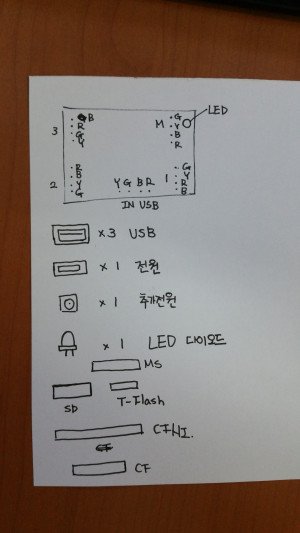 LED
B
R
G
Y
3
M
G
Y
B
R
2
R
B
Y
G
Y G B R
1
G
Y
R
B
IN USB
x3 USB
x 1 전원
x 1 추가전원
x 1 LED 다이오드
MS
SD
T-Flash
CF
CF